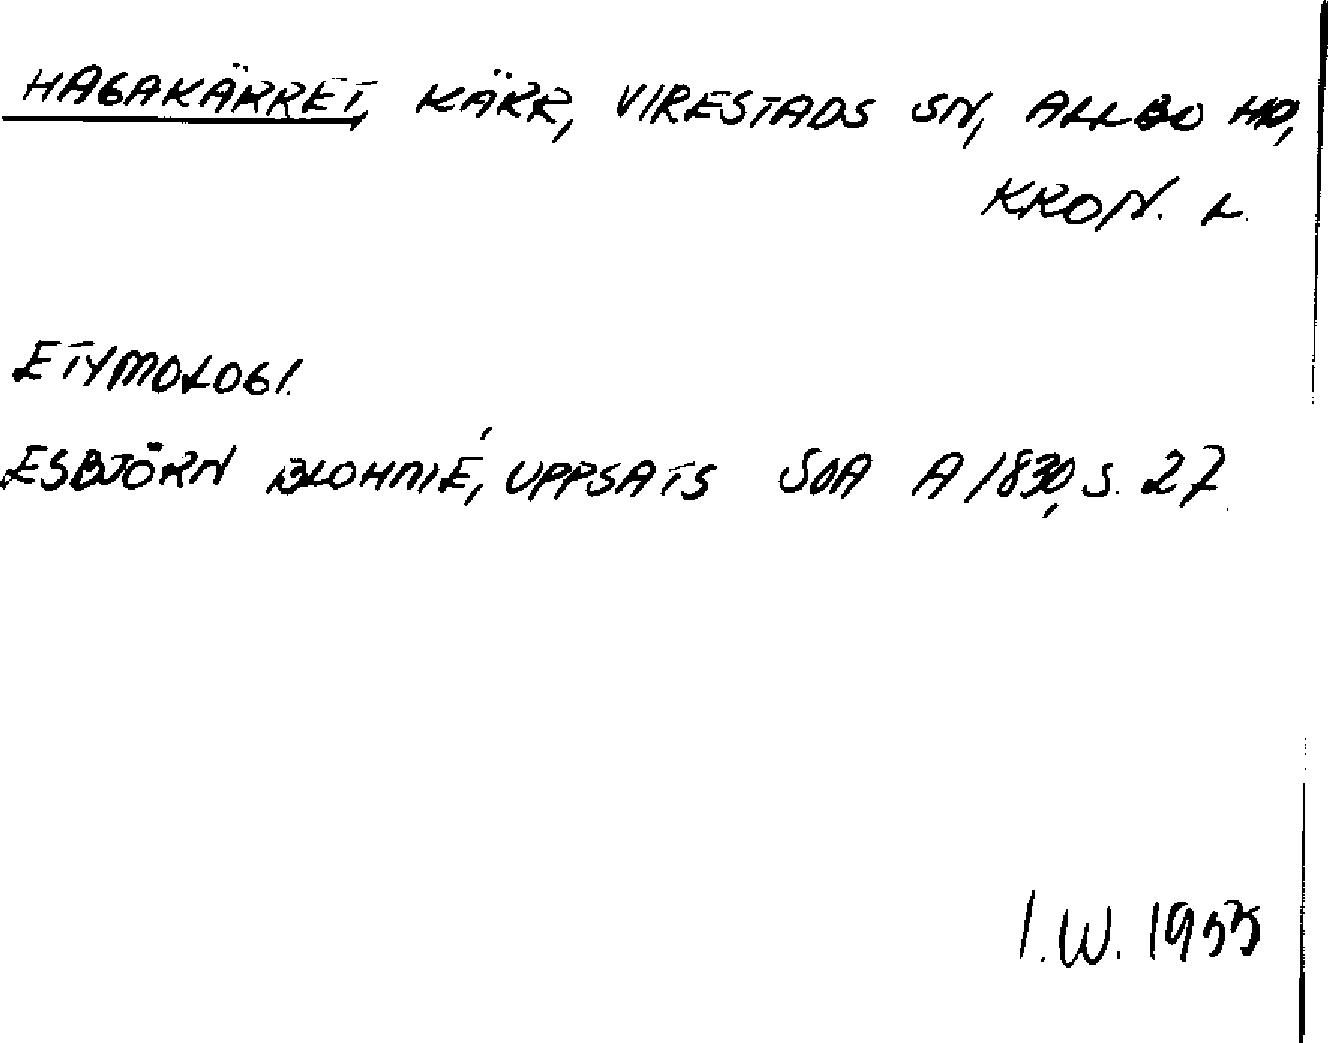 HAGAKÄRRET, KÄRR, VIRESTADS SN, ALLBO HD,
KRON. L.
ETYMOLOGI.
ESBJÖRN BLOHMÉ, UPPSATS SOA A 1830, S. 27.
I.W. 1955